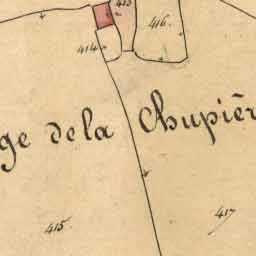 413
416
414
ge de la Chupièr
415
417